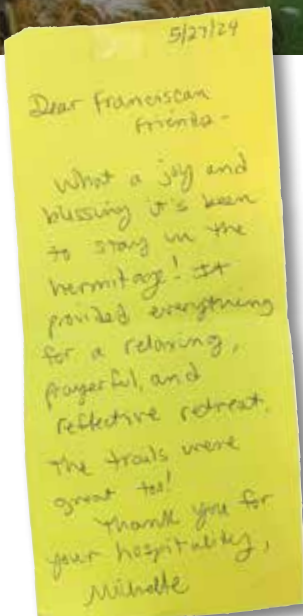 5/27/24
Dear Franciscan
Friends -
What a joy and
blessing it's been
to stay in the
hermitage! It
provided everything
for a relaxing,
prayerful, and
reflective retreat.
The trails were
great too!
Thank you for
your hospitality,
Michelle